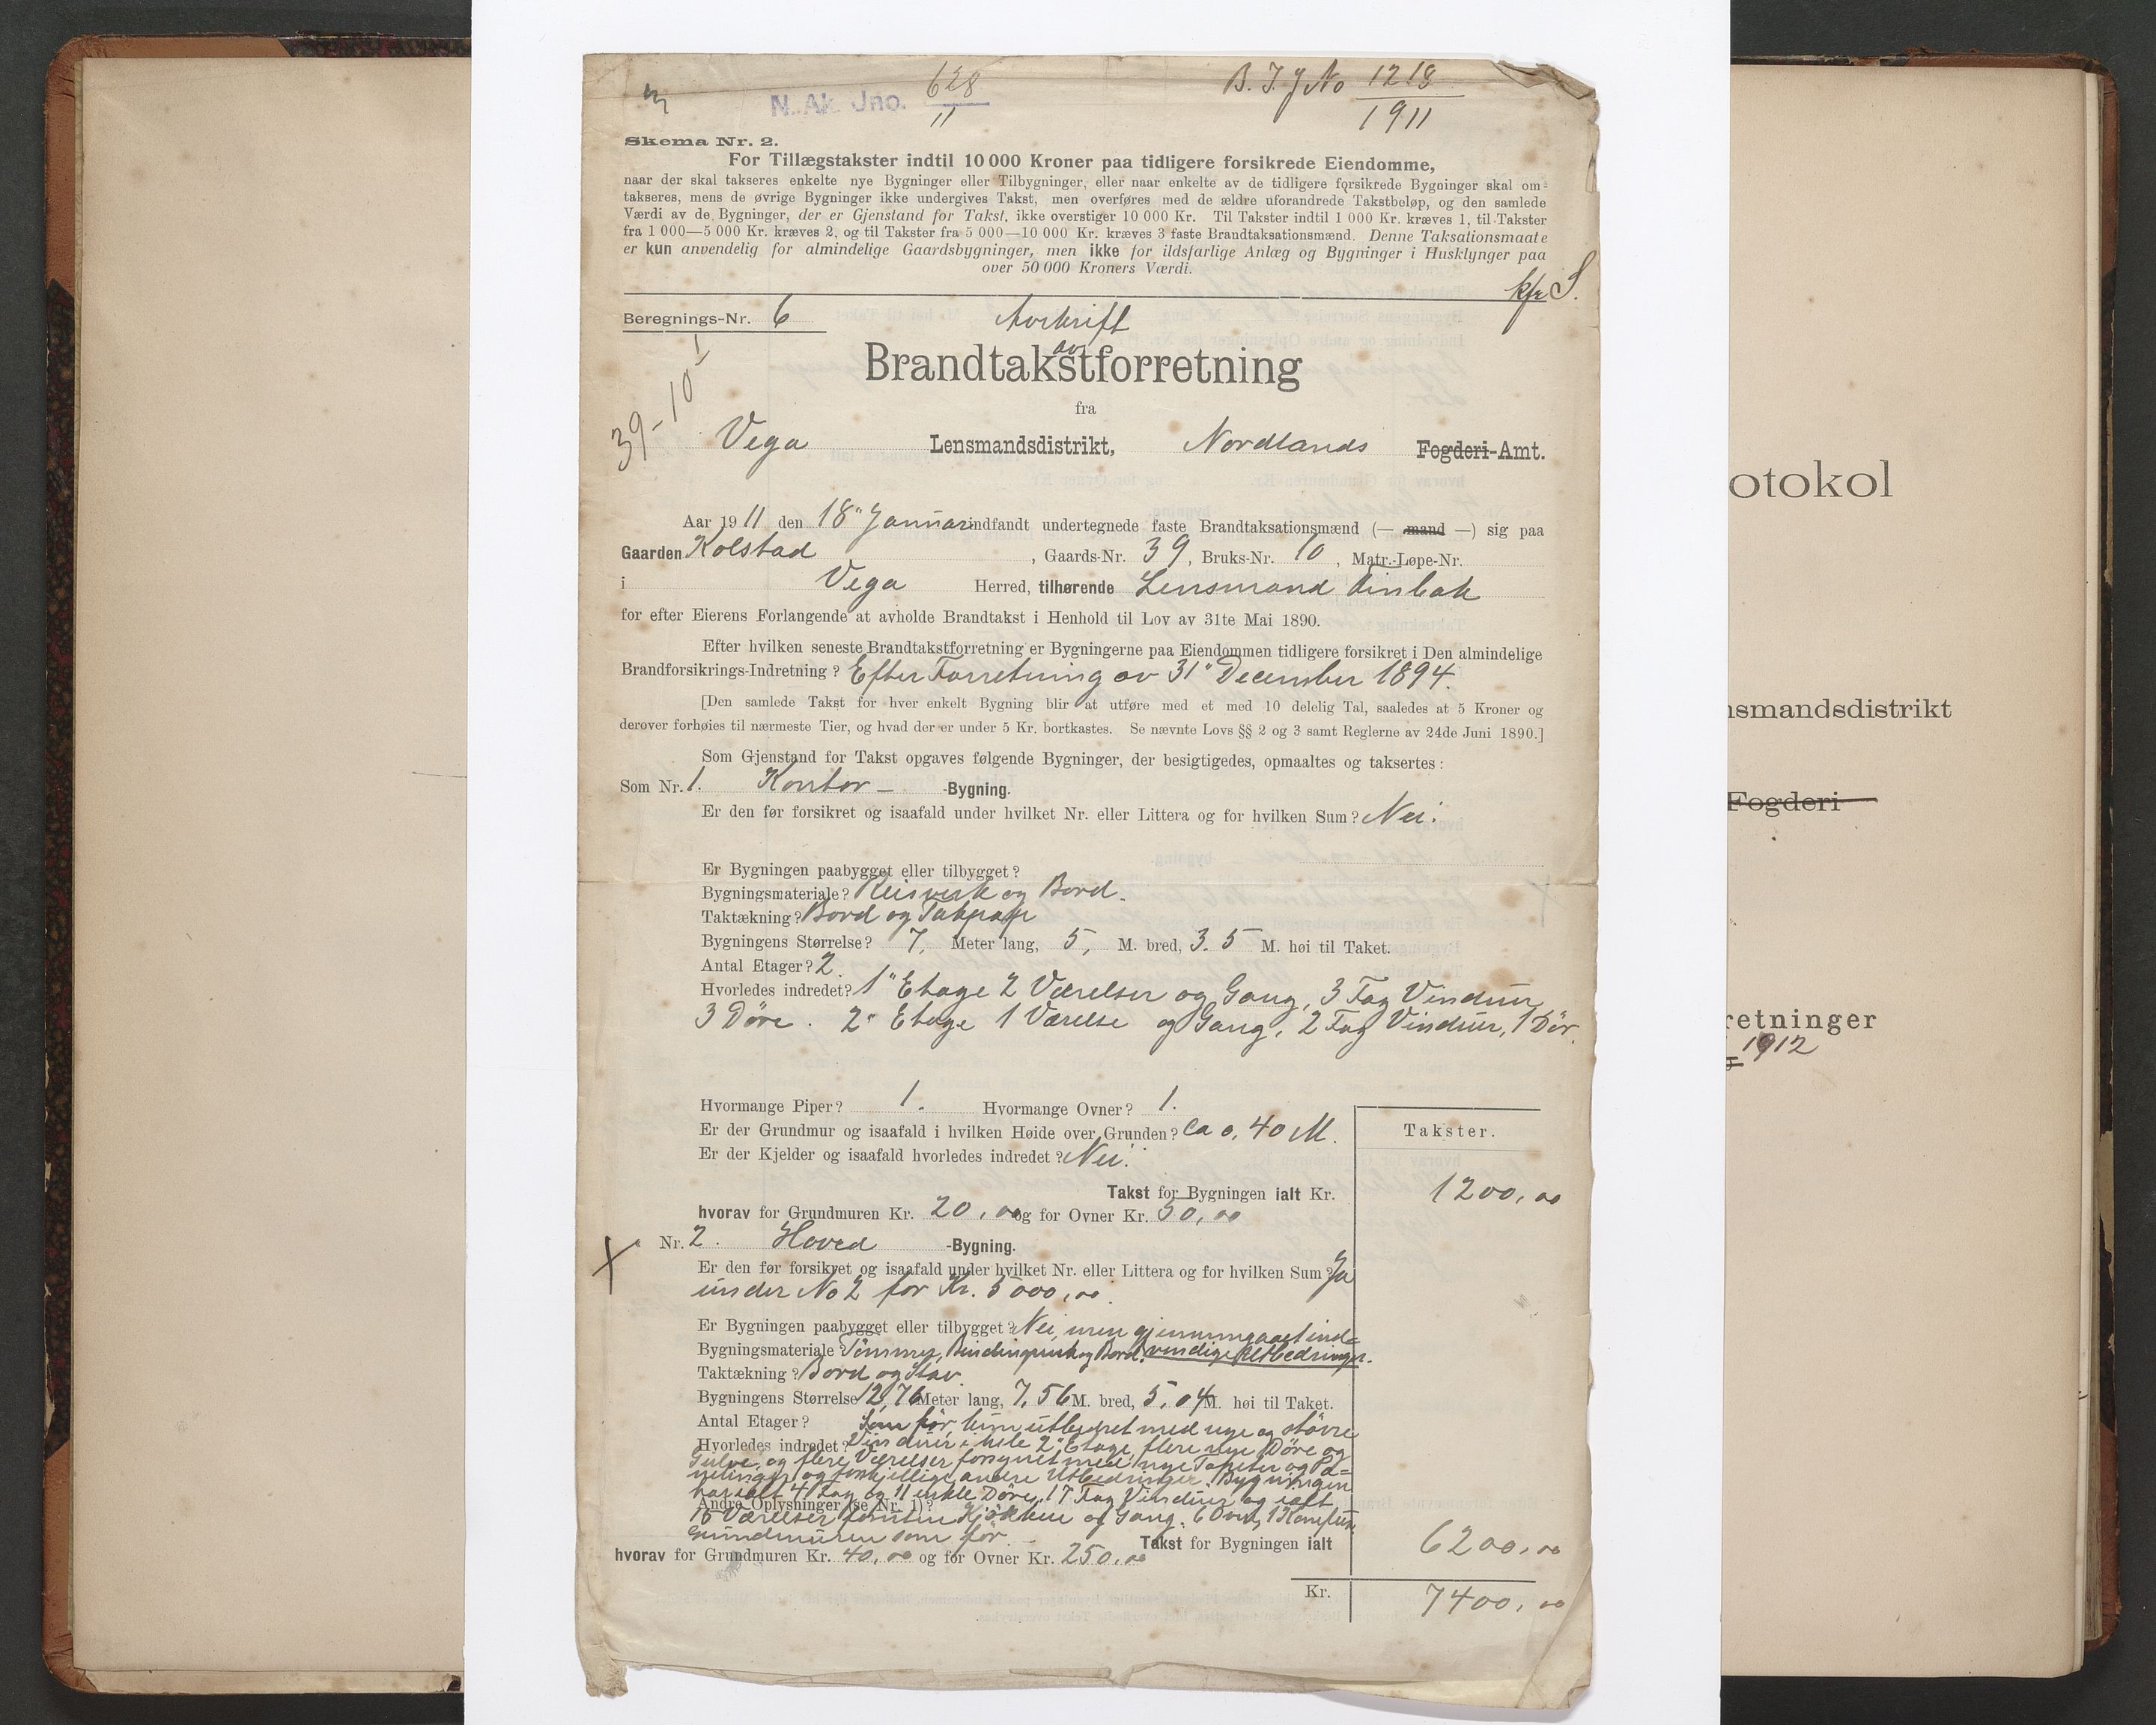 628
11
N. Ak. Jno.
B. J. J No 1218
1911
Skema Nr. 2.
For Tillægstakster indtil 10 000 Kroner paa tidligere forsikrede Eiendomme,
naar der skal takseres enkelte nye Bygninger eller Tilbygninger, eller naar enkelte av de tidligere forsikrede Bygninger skal om-
takseres, mens de øvrige Bygninger ikke undergives Takst, men overføres med de ældre uforandrede Takstbeløp, og den samlede
Værdi av de Bygninger, der er Gjenstand for Takst, ikke overstiger 10 000 Kr. Til Takster indtil 1 000 Kr. kræves 1, til Takster
fra 1 000—5 000 Kr. kræves 2, og til Takster fra 5 000—10 000 Kr. kræves 3 faste Brandtaksationsmænd. Denne Taksationsmaate
er kun anvendelig for almindelige Gaardsbygninger, men ikke for ildsfarlige Anlæg og Bygninger i Husklynger paa
over 50 000 Kroners Værdi.
kfr S.
Beregnings-Nr. 6
Avskrift
av
Brandtakstforretning
fra
39-10-1
Vega Lensmandsdistrikt, Nordlands Fogderi-Amt.
Aar 1911 den 18" Januar indfandt undertegnede faste Brandtaksationsmænd (— mand —) sig paa
Gaarden Kolstad, Gaards-Nr. 39, Bruks-Nr. 10, Matr.-Løpe-Nr.
i Vega Herred, tilhørende Lensmand Finbak
for efter Eierens Forlangende at avholde Brandtakst i Henhold til Lov av 31te Mai 1890.
Efter hvilken seneste Brandtakstforretning er Bygningerne paa Eiendommen tidligere forsikret i Den almindelige
Brandforsikrings-Indretning? Efter Forretning av 31" December 1894.
[Den samlede Takst for hver enkelt Bygning blir at utføre med et med 10 delelig Tal, saaledes at 5 Kroner og
derover forhøies til nærmeste Tier, og hvad der er under 5 Kr. bortkastes. Se nævnte Lovs §§ 2 og 3 samt Reglerne av 24de Juni 1890.]
Som Gjenstand for Takst opgaves følgende Bygninger, der besigtigedes, opmaaltes og taksertes:
Som Nr. 1. Kontor - -Bygning.
Er den før forsikret og isaafald under hvilket Nr. eller Littera og for hvilken Sum? Nei.
Er Bygningen paabygget eller tilbygget?
Bygningsmateriale? Reisverk og Bord.
Taktækning? Bord og Takpap
Bygningens Størrelse? 7, Meter lang, 5, M. bred, 3.5 M. høi til Taket.
Antal Etager? 2.
Hvorledes indredet? 1" Etage 2 Værelser og Gang, 3 Fag Vinduer
3 Døre. 2" Etage 1 Værelse og Gang, 2 Fag Vinduer, 1 Dør.
Hvormange Piper? 1. Hvormange Ovner? 1.
Er der Grundmur og isaafald i hvilken Høide over Grunden? Ca 0,40 M.
Takster.
Er der Kjelder og isaafald hvorledes indredet? Nei.
Takst for Bygningen ialt Kr. 1200,00
hvorav for Grundmuren Kr. 20,00 og for Ovner Kr. 50,00
Nr. 2. Hoved -Bygning.
Er den før forsikret og isaafald under hvilket Nr. eller Littera og for hvilken Sum? Ja
under No 2 for Kr. 5000,00.
Er Bygningen paabygget eller tilbygget? Nei, men gjennemgaaet ind-
Bygningsmateriale? Tømmer, Bindingverk og Bord. vendige Utbedringer.
Taktækning? Bord og Stav.
Bygningens Størrelse 12,76 Meter lang, 7,56 M. bred, 5,04 M. høi til Taket.
Antal Etager? Som før, kun utbedret med nye og større
Hvorledes indredet? Vinduer i hele 2" Etage, flere nye Døre og
Gulve, og flere Værelser forsynet med nye Tapeter og Pa-
nelinger og forskjellige andre Utbedringer. Bygningen
har ialt 4 Fag og 11 enkle Døre, 17 Fag Vinduer og ialt
Andre Oplysninger (se Nr. 1)?
Værelser foruten Kjøkken og Gang. 6 Ovne, 1 Komfur.
Grundmuren som før.
Takst for Bygningen ialt 6200,00
hvorav for Grundmuren Kr. 40,00 og for Ovner Kr. 250,00
Kr. 7400,00
otokol
nsmandsdistrikt
Fogderi
retninger
1912